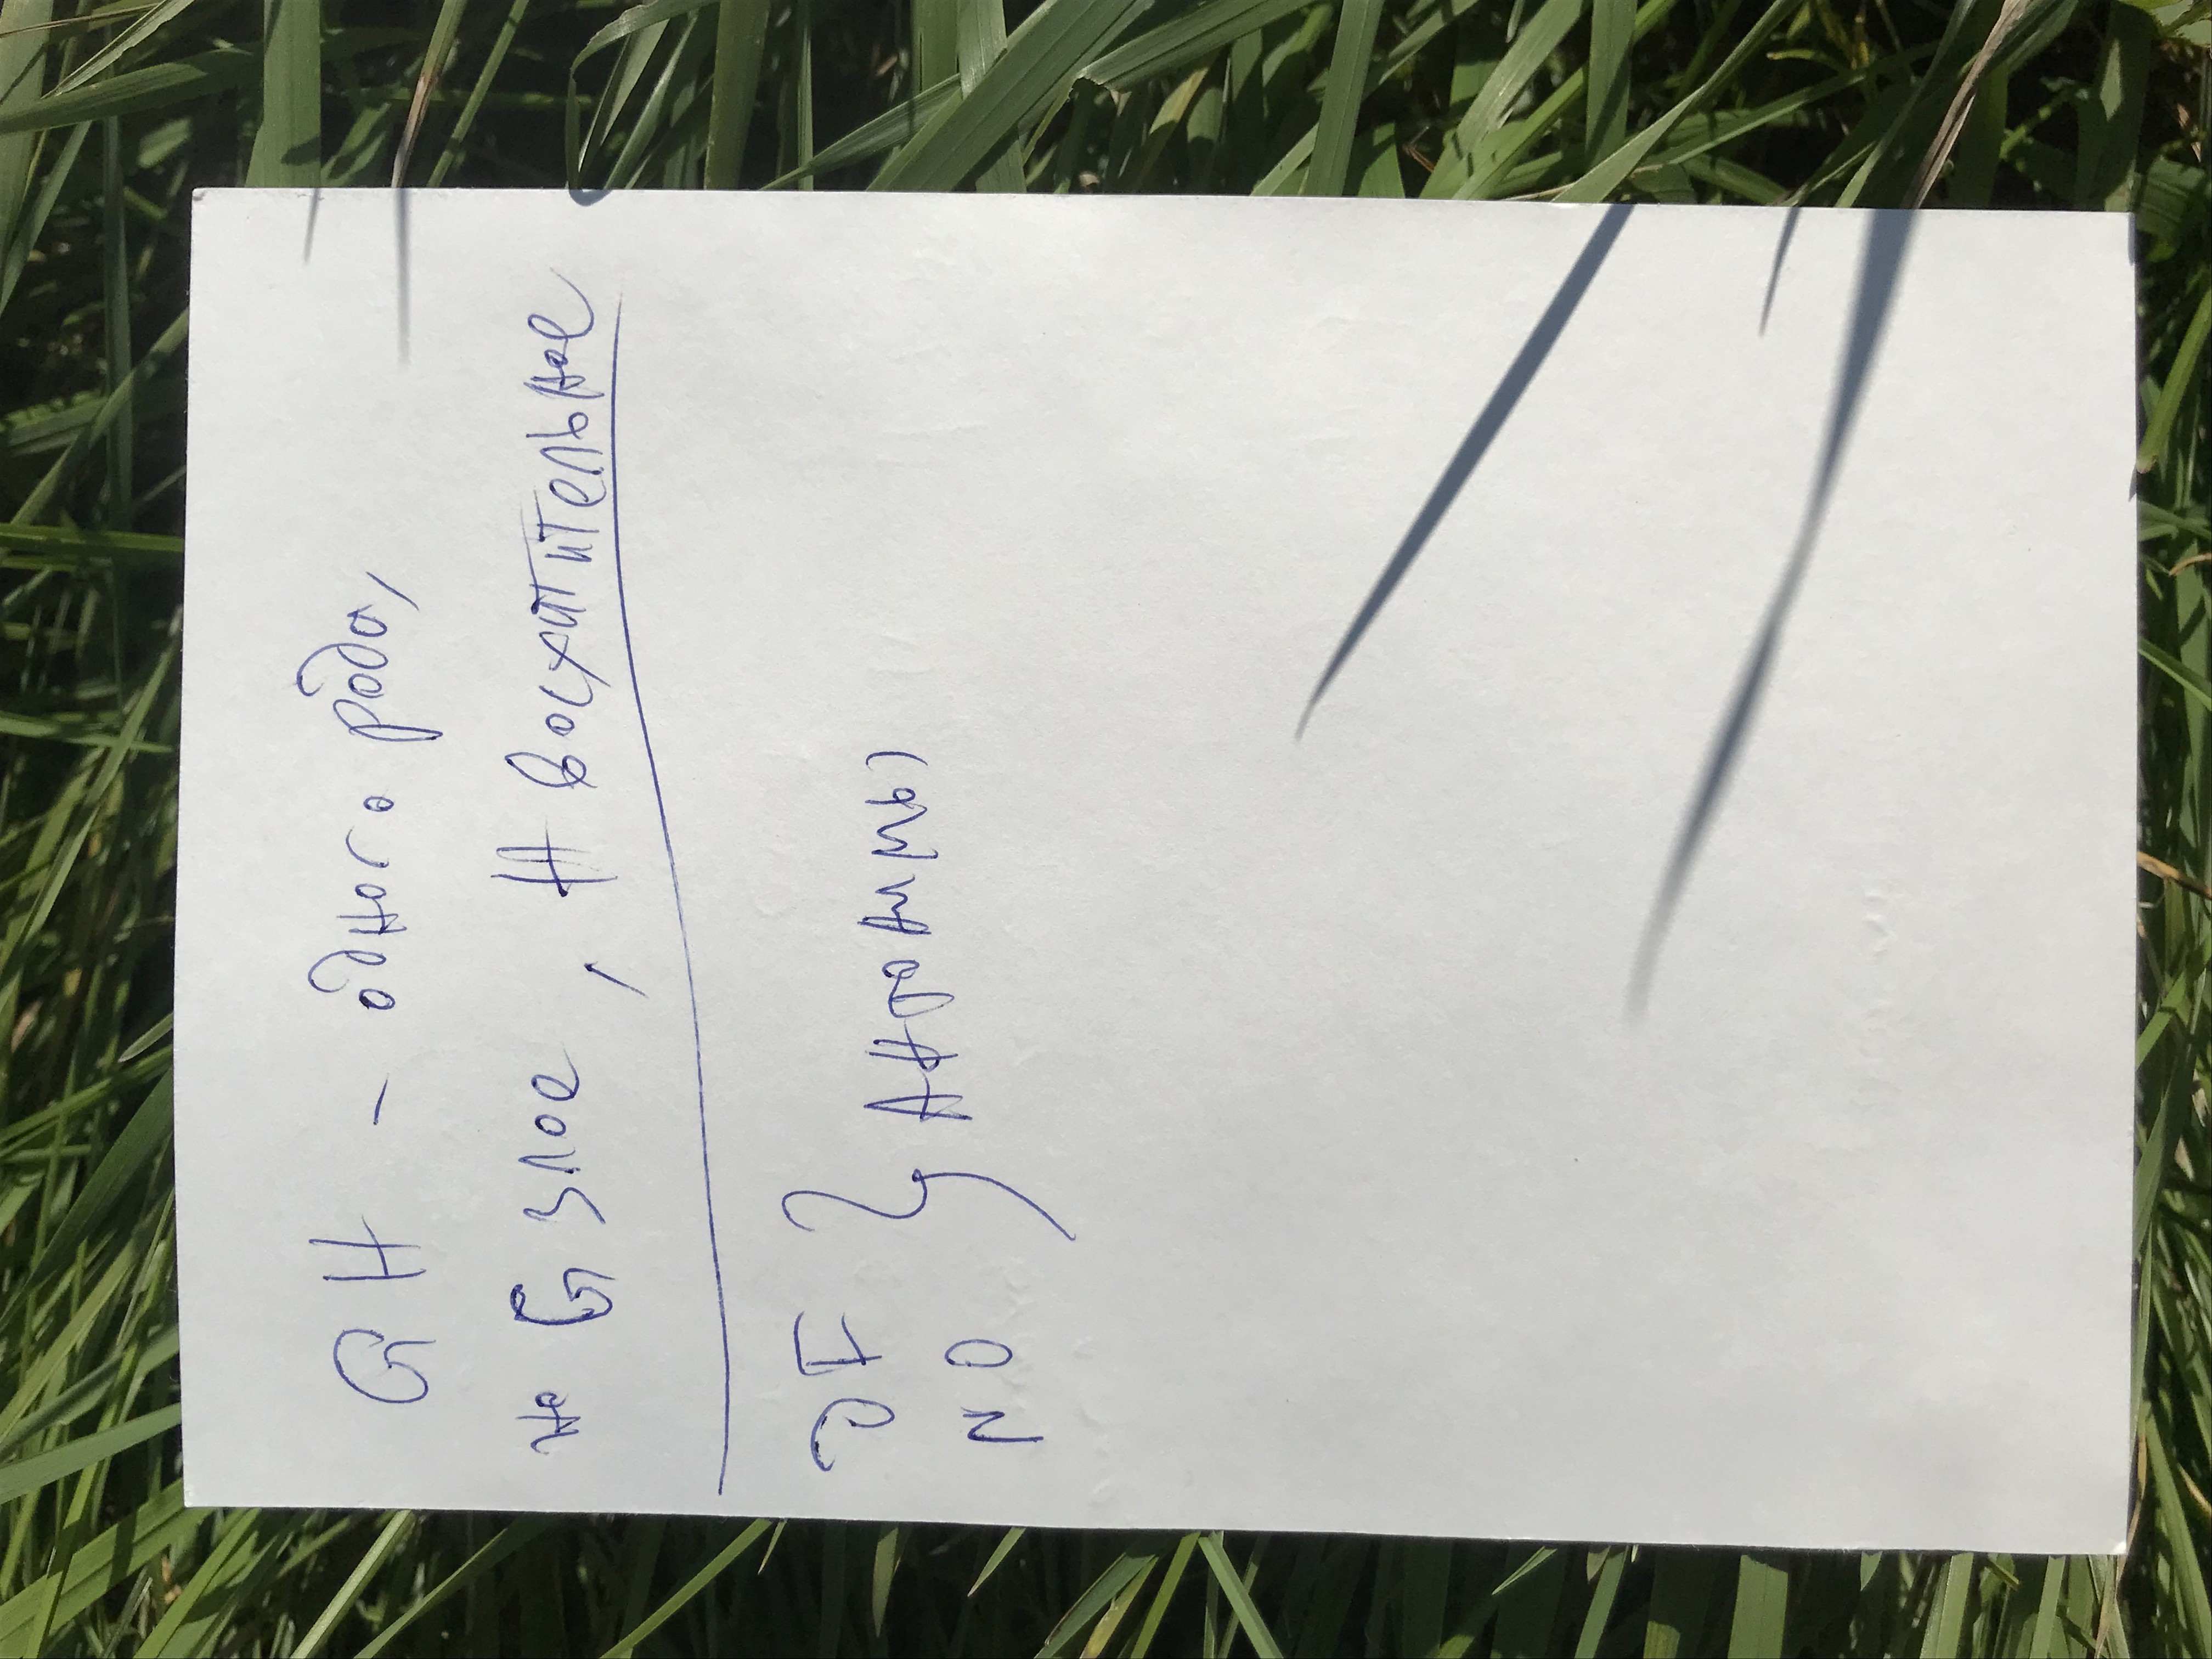 GH - одного рода,
но G злое, H восхитительное
DF
NO } Антонимы